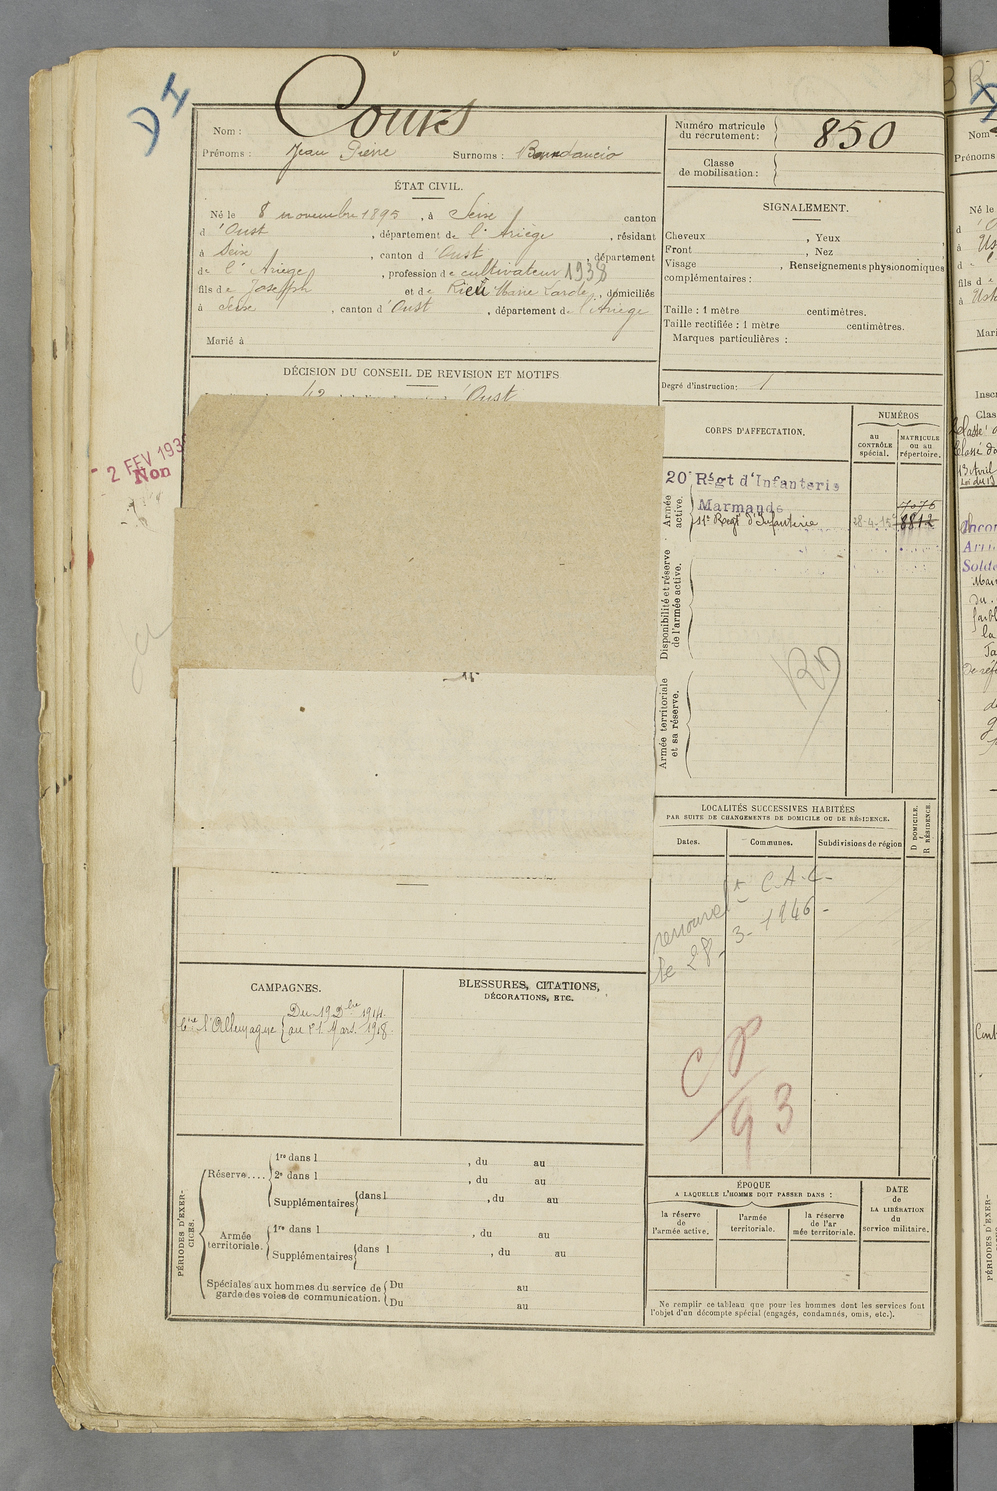 DI
Nom : Cours
Prénoms : Jean Pierre Surnoms :
Numéro matricule du recrutement : 850
Classe de mobilisation :
ÉTAT CIVIL.
Né le 8 novembre 1895, à Seix canton
d'Oust, département de l'Ariège, résidant
à Seix, canton d'Oust, département
de l'Ariège, profession de cultivateur 1938
fils de Joseph et de Rieu Marie, domiciliés
à Seix, canton d'Oust, département de l'Ariège
Marié à
SIGNALEMENT.
Cheveux , Yeux
Front , Nez
Visage , Renseignements physionomiques
complémentaires :
Taille : 1 mètre centimètres.
Taille rectifiée : 1 mètre centimètres.
Marques particulières :
Degré d'instruction : 1
DÉCISION DU CONSEIL DE REVISION ET MOTIFS
42 Oust
2 FEV 193
Non
CORPS D'AFFECTATION.
NUMÉROS
au CONTRÔLE spécial.
MATRICULE ou au répertoire.
Armée active.
20e Régt d'Infanterie
Marmande
7076
11e Régt d'Infanterie 28-4-15 8812
Disponibilité et réserve de l'armée active.
Armée territoriale et sa réserve.
LOCALITÉS SUCCESSIVES HABITÉES
PAR SUITE DE CHANGEMENTS DE DOMICILE OU DE RÉSIDENCE.
D DOMICILE. R RÉSIDENCE
Dates. Communes. Subdivisions de région
renouvelt C.A.C.
le 28-3-1946-
CP
93
CAMPAGNES.
Ctre l'Allemagne { Du 19 Dbre 1914
au 1er Mars 1918
BLESSURES, CITATIONS,
DÉCORATIONS, ETC.
PÉRIODES D'EXERCICES.
Réserve.... 1re dans l , du au
2e dans l , du au
Supplémentaires { dans l , du au
Armée territoriale. 1re dans l , du au
Supplémentaires { dans l , du au
Spéciales aux hommes du service de garde des voies de communication. { Du au
Du au
ÉPOQUE
A LAQUELLE L'HOMME DOIT PASSER DANS :
la réserve de l'armée active.
l'armée territoriale.
la réserve de l'armée territoriale.
DATE
de
LA LIBÉRATION
du
service militaire.
Ne remplir ce tableau que pour les hommes dont les services font
l'objet d'un décompte spécial (engagés, condamnés, omis, etc.).